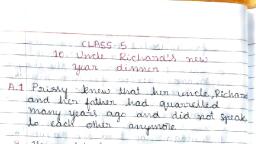 CLASS 5
10. Uncle Richard's new
year dinner
A.1 Prissy knew that her uncle, Richard
and her father had quarrelled
many years ago and did not speak
to each other anymore.